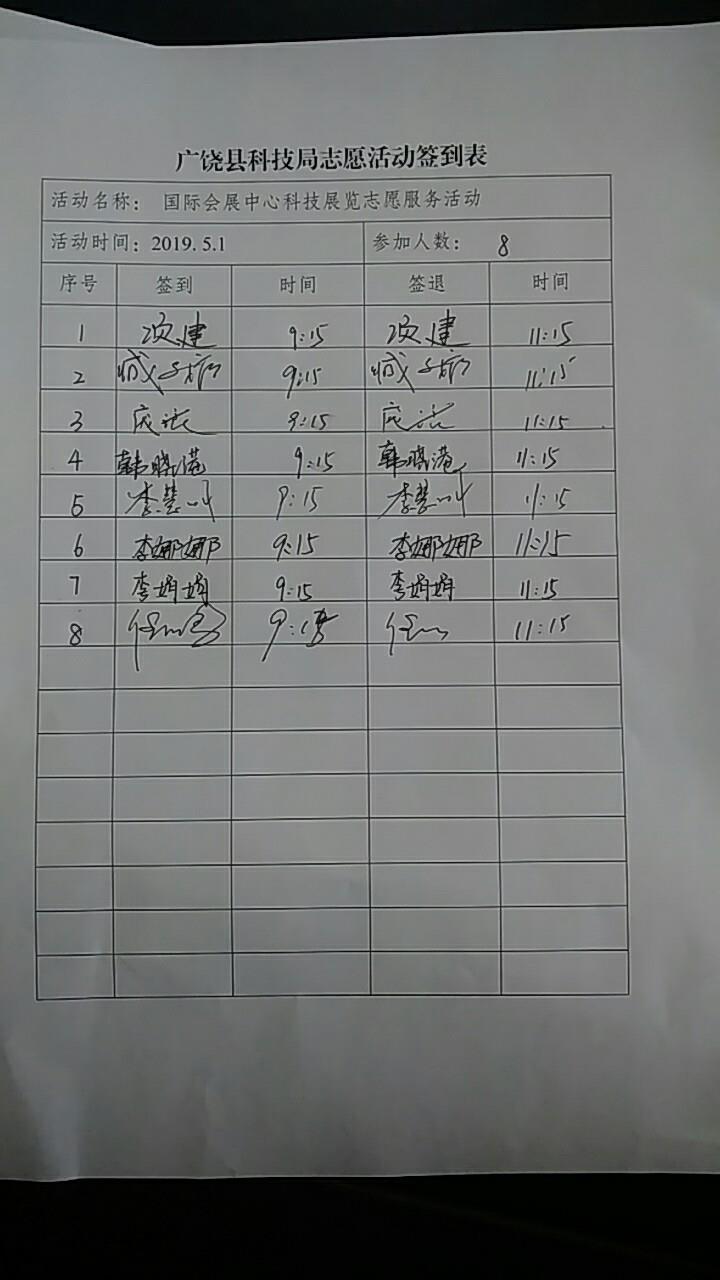 广饶县科技局志愿活动签到表
活动名称： 国际会展中心科技展览志愿服务活动
活动时间：2019.5.1 参加人数： 8
序号 签到 时间 签退 时间
1 项建 9:15 项建 11:15
2 9:15 11:15
3 9:15 11:15
4 韩晓港 9:15 韩晓港 11:15
5 李慧 9:15 李慧 11:15
6 李娜娜 9:15 李娜娜 11:15
7 李娟娟 9:15 李娟娟 11:15
8 9:15 11:15